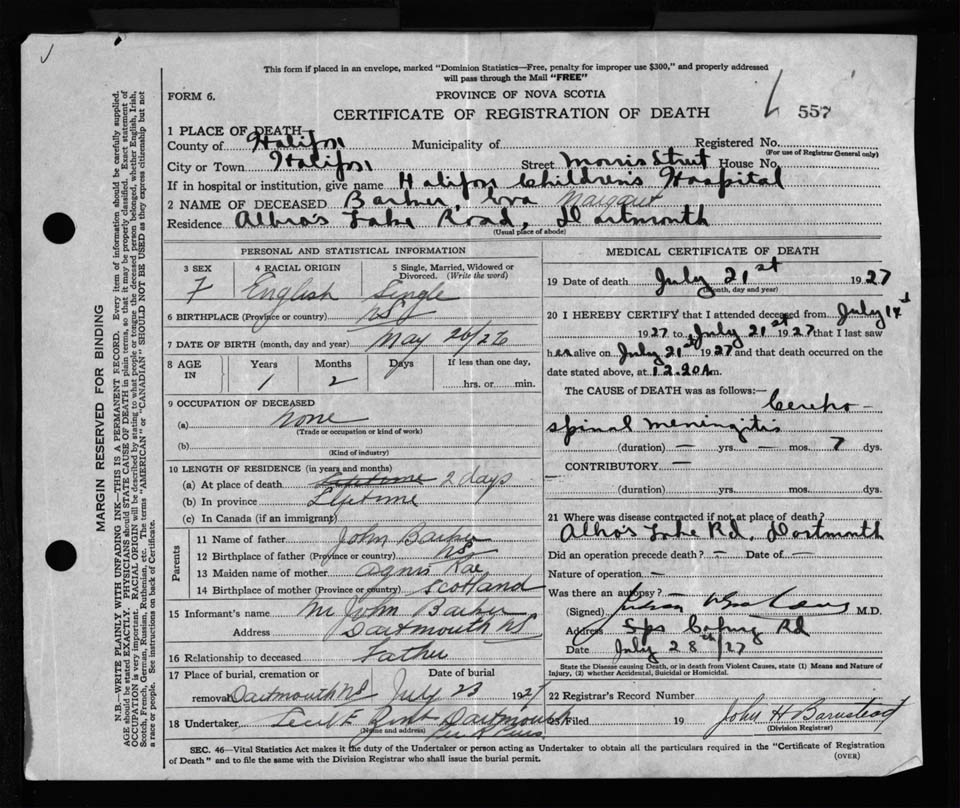 This form if placed in an envelope, marked "Dominion Statistics—Free, penalty for improper use $300," and properly addressed
will pass through the Mail "FREE"
FORM 6.
PROVINCE OF NOVA SCOTIA
CERTIFICATE OF REGISTRATION OF DEATH
557
1 PLACE OF DEATH—
County of Halifax Municipality of Registered No.
(For use of Registrar General only)
City or Town Halifax Street Morris Street House No.
If in hospital or institution, give name Halifax Children's Hospital
2 NAME OF DECEASED Barker, Eva Margaret
Residence Albro's Lake Road, Dartmouth
(Usual place of abode)
PERSONAL AND STATISTICAL INFORMATION
3 SEX 4 RACIAL ORIGIN 5 Single, Married, Widowed or Divorced. (Write the word)
F English Single
6 BIRTHPLACE (Province or country) NS
7 DATE OF BIRTH (month, day and year) May 26/26
8 AGE IN Years Months Days If less than one day,
1 2 hrs. or min.
9 OCCUPATION OF DECEASED
(a) none
(Trade or occupation or kind of work)
(b)
(Kind of industry)
10 LENGTH OF RESIDENCE (in years and months)
(a) At place of death Lifetime 2 days
(b) In province Lifetime
(c) In Canada (if an immigrant)
Parents
11 Name of father John Barker
12 Birthplace of father (Province or country) NS
13 Maiden name of mother Agnes Rae
14 Birthplace of mother (Province or country) Scotland
15 Informant's name Mr John Barker
Address Dartmouth NS
16 Relationship to deceased Father
17 Place of burial, cremation or Date of burial
removal Dartmouth NS July 23 1927
18 Undertaker Cecil E. Dartmouth
(Name and address)
MEDICAL CERTIFICATE OF DEATH
19 Date of death July 21st 1927
(Month, day and year)
20 I HEREBY CERTIFY that I attended deceased from July 14
1927 to July 21st 1927 that I last saw
her alive on July 21st 1927 and that death occurred on the
date stated above, at 12.20 A m.
The CAUSE of DEATH was as follows:— Cerebro-
spinal meningitis
(duration) — yrs. — mos. 7 dys.
CONTRIBUTORY —
(duration) yrs. mos. dys.
21 Where was disease contracted if not at place of death?
Albro's Lake Rd, Dartmouth
Did an operation precede death? – Date of –
Nature of operation –
Was there an autopsy?
(Signed) M.D.
Address Rd
Date July 28th/27
State the Disease causing Death, or in death from Violent Causes, state (1) Means and Nature of
Injury, (2) whether Accidental, Suicidal or Homicidal.
22 Registrar's Record Number
23 Filed 19 John H Barnstead
(Division Registrar)
SEC. 46—Vital Statistics Act makes it the duty of the Undertaker or person acting as Undertaker to obtain all the particulars required in the "Certificate of Registration
of Death" and to file the same with the Division Registrar who shall issue the burial permit.
(OVER)
MARGIN RESERVED FOR BINDING
N.B.—WRITE PLAINLY WITH UNFADING INK—THIS IS A PERMANENT RECORD. Every item of information should be carefully supplied.
AGE should be stated EXACTLY. PHYSICIANS should STATE CAUSE OF DEATH in plain terms, so that it may be properly classified. Exact statement of
OCCUPATION is very important. RACIAL ORIGIN will be described by stating to what people or tongue the deceased person belonged, whether English, Irish,
Scotch, French, German, Russian, Ruthenian, etc. The terms "AMERICAN" or "CANADIAN" SHOULD NOT BE USED as they express citizenship but not
a race or people. See instructions on back of Certificate.